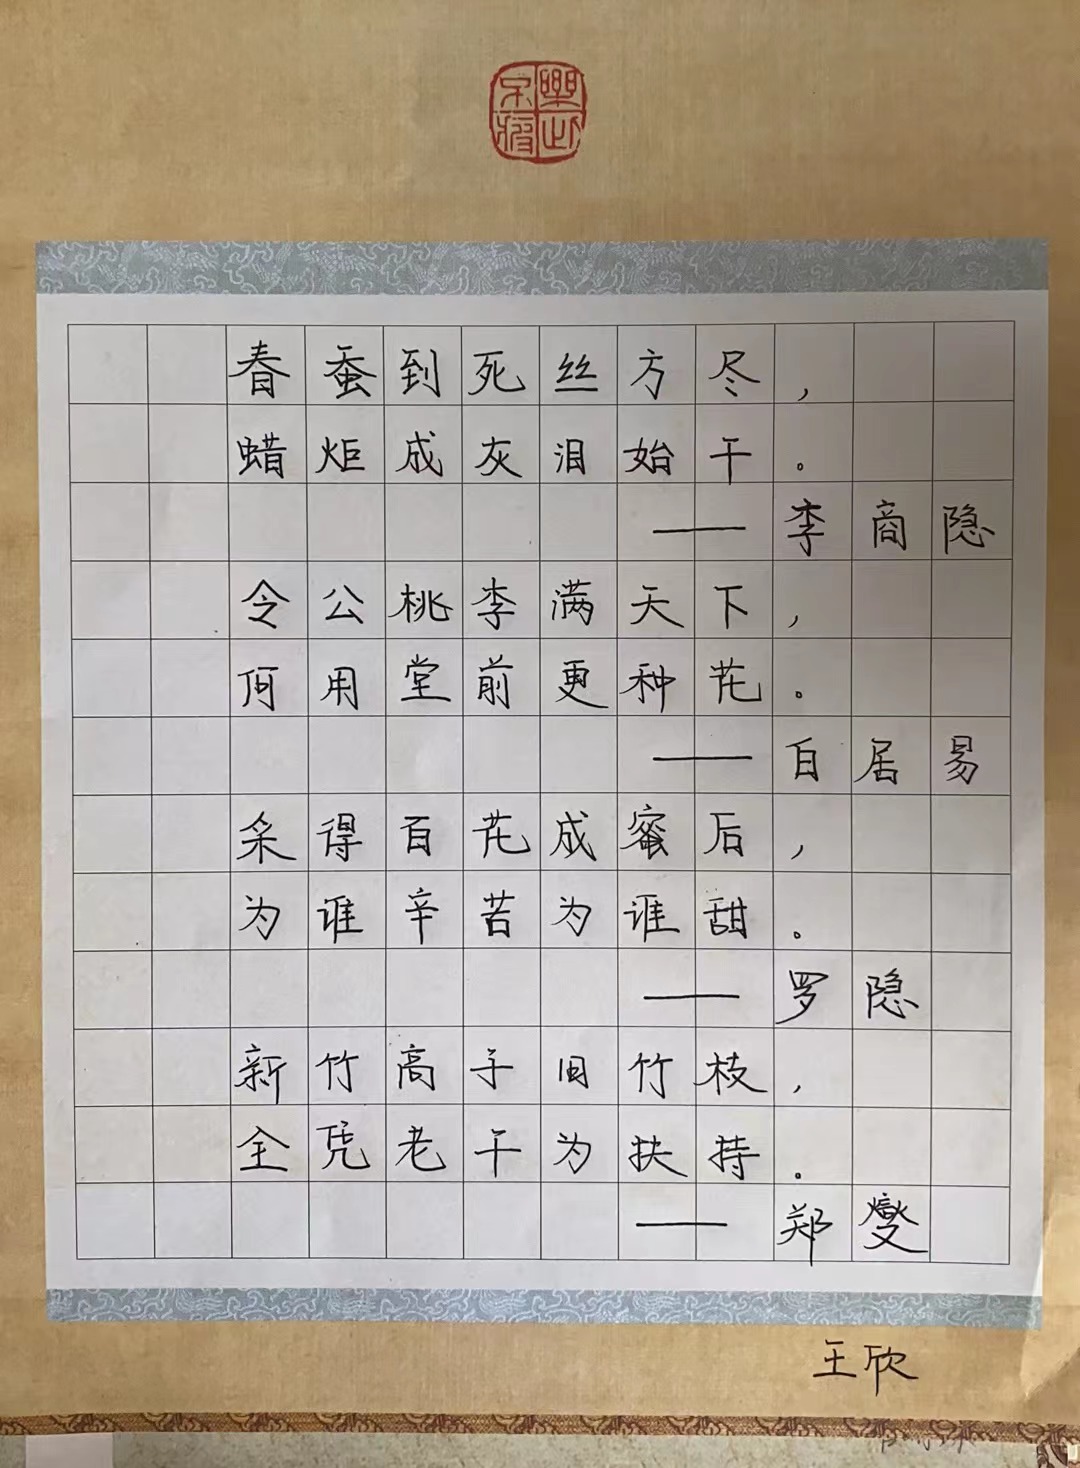 春蚕到死丝方尽，
蜡炬成灰泪始干。
——李商隐
令公桃李满天下，
何用堂前更种花。
——白居易
采得百花成蜜后，
为谁辛苦为谁甜。
——罗隐
新竹高于旧竹枝，
全凭老干为扶持。
——郑燮
王欣